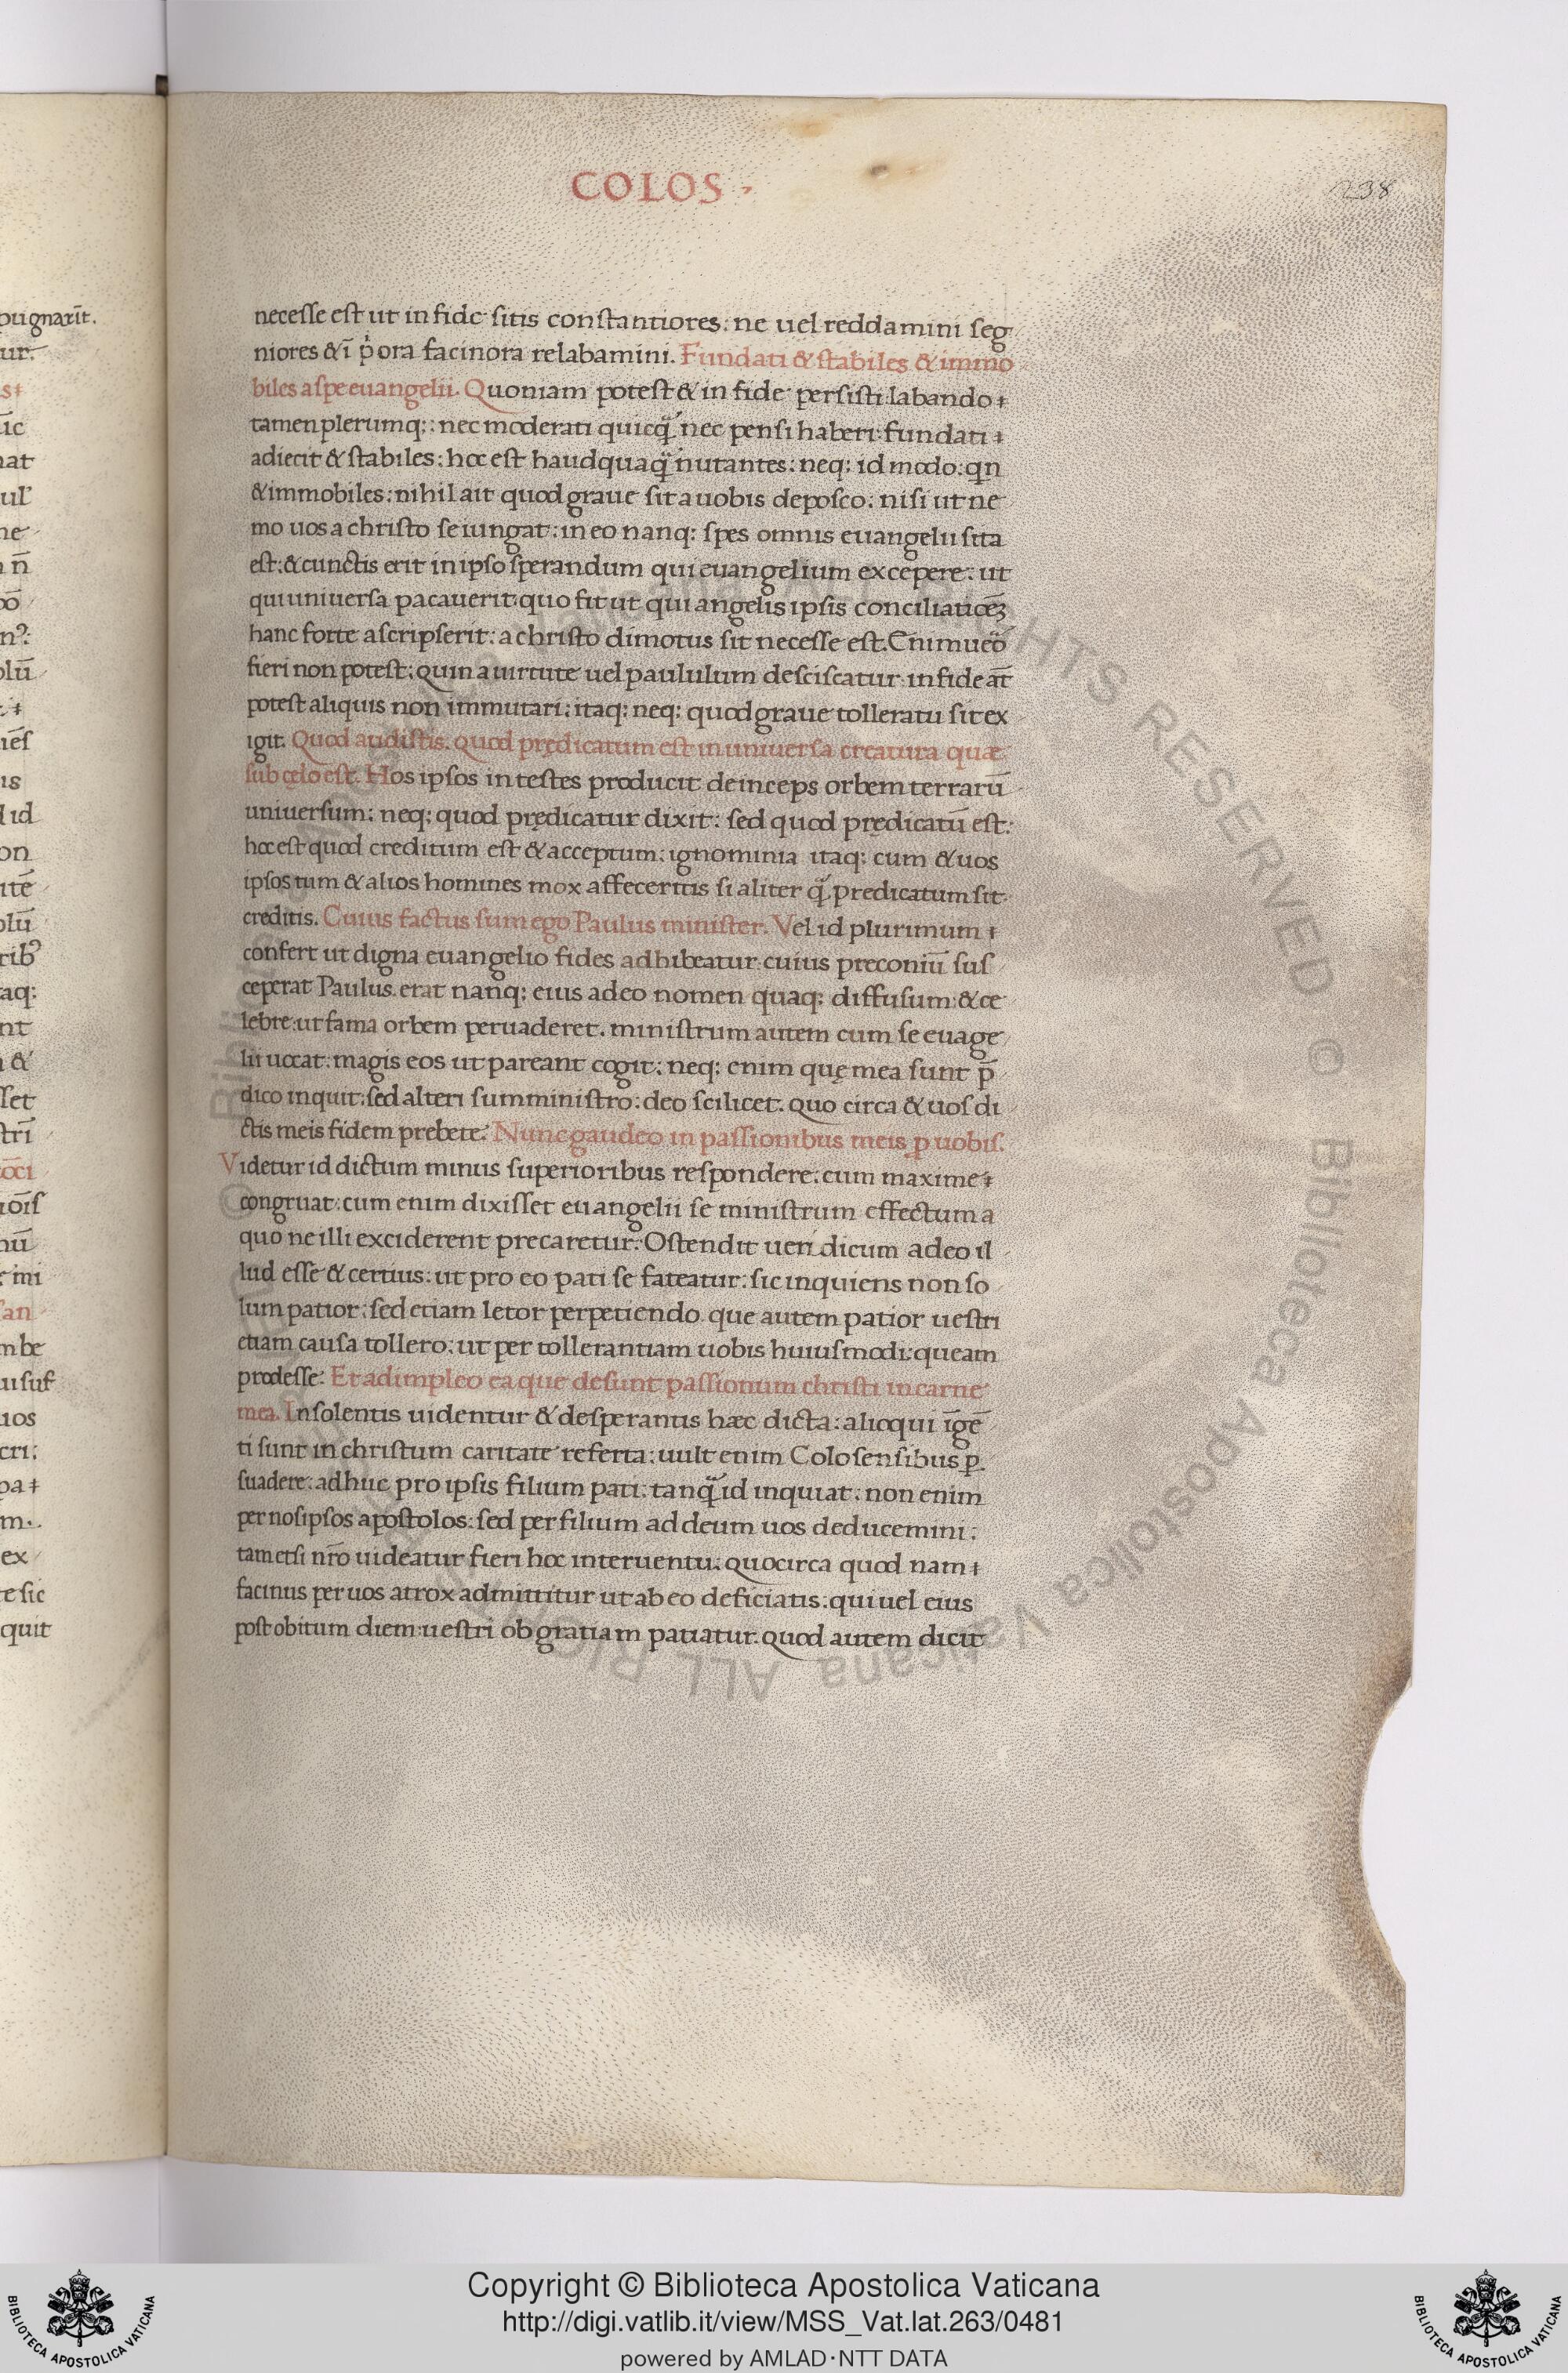 COLOS ·
238
necesse est ut in fide sitis constantiores: ne uel reddamini seg
niores & ī p̓ora facinora relabamini. Fundati & stabiles & immo
biles a spe euangelii. Quoniam potest & in fide persisti labando
tamen plerumq;: nec moderati quicq̃ nec pensi haberi: fundati
adiecit & stabiles: hoc est haudquaq̃ nutantes: neq; id modo: qn
& immobiles: nihil ait quod graue sit a uobis deposco: nisi ut ne
mo uos a christo seiungat: in eo nanq; spes omnis euangelii sita
est: & cunctis erit in ipso sperandum qui euangelium excepere: ut
qui uniuersa pacauerit quo fit ut qui angelis ipsis conciliatiōeȝ
hanc forte ascripserit: a christo dimotus sit necesse est. Enimueō
fieri non potest: quin a uirtute uel paululum desciscatur in fide aūt
potest aliquis non immutari: itaq; neq; quod graue tolleratu sit ex
igit. Quod audistis. quod prędicatum est in uniuersa creatura quæ
sub cęlo est. Hos ipsos in testes producit deinceps orbem terrarū
uniuersum: neq; quod prędicatur dixit: sed quod prędicatū est:
hoc est quod creditum est & acceptum: ignominia itaq; cum & uos
ipsos tum & alios homines mox affeceritis si aliter q̃ predicatum sit
creditis. Cuius factus sum ego Paulus minister. Vel id plurimum
confert ut digna euangelio fides adhibeatur cuius preconiū sus
ceperat Paulus. erat nanq; eius adeo nomen quaq; diffusum & ce
lebre: ut fama orbem peruaderet. ministrum autem cum se euage
lii uocat: magis eos ut pareant cogit: neq; enim quę mea sunt p̄
dico inquit: sed alteri sumministro: deo scilicet. quo circa & uos di
ctis meis fidem prebete. Nunc gaudeo in passionibus meis ꝓ uobis.
Videtur id dictum minus superioribus respondere: cum maxime
congruat: cum enim dixisset euangelii se ministrum effectum a
quo ne illi exciderent precaretur: Ostendit ueri dicum adeo il
lud esse & certius: ut pro eo pati se fateatur: sic inquiens non so
lum patior: sed etiam letor perpetiendo. que autem patior uestri
etiam causa tollero: ut per tollerantiam uobis huiusmodi: queam
prodesse. Et adimpleo ea que desunt passionum christi in carne
mea. Insolentis uidentur & desperantis hæc dicta: alioqui īgē
ti sunt in christum caritate referta: uult enim Colosensibus ꝑ
suadere: adhuc pro ipsis filium pati: tanq̃ id inquiat: non enim
per nosipsos apostolos: sed per filium ad deum uos deducemini:
tametsi nr̄o uideatur fieri hoc interuentu: quocirca quod nam
facinus per uos atrox admittitur ut ab eo deficiatis: qui uel eius
post obitum diem: uestri ob gratiam patiatur. quod autem dicit
Copyright © Biblioteca Apostolica Vaticana
http://digi.vatlib.it/view/MSS_Vat.lat.263/0481
powered by AMLAD·NTT DATA